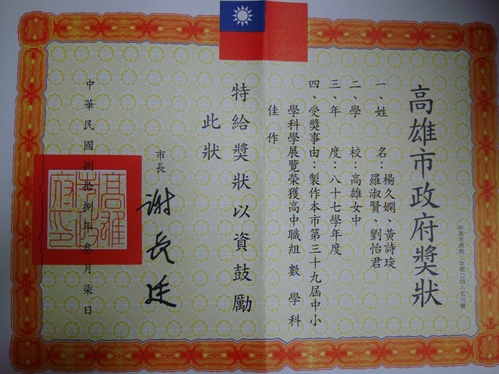 高雄市政府獎狀
一、姓　名：楊久嫻、黃詩琁
羅淑賢、劉怡君
二、學　校：高雄女中
三、年　度：八十七學年度
四、受獎事由：製作本市第三十九屆中小
學科學展覽榮獲高中職組數學科
佳作
特給獎狀以資鼓勵
此狀
市長　謝長廷
高雄
市政
府印
中華民國捌拾捌年叁月柒日